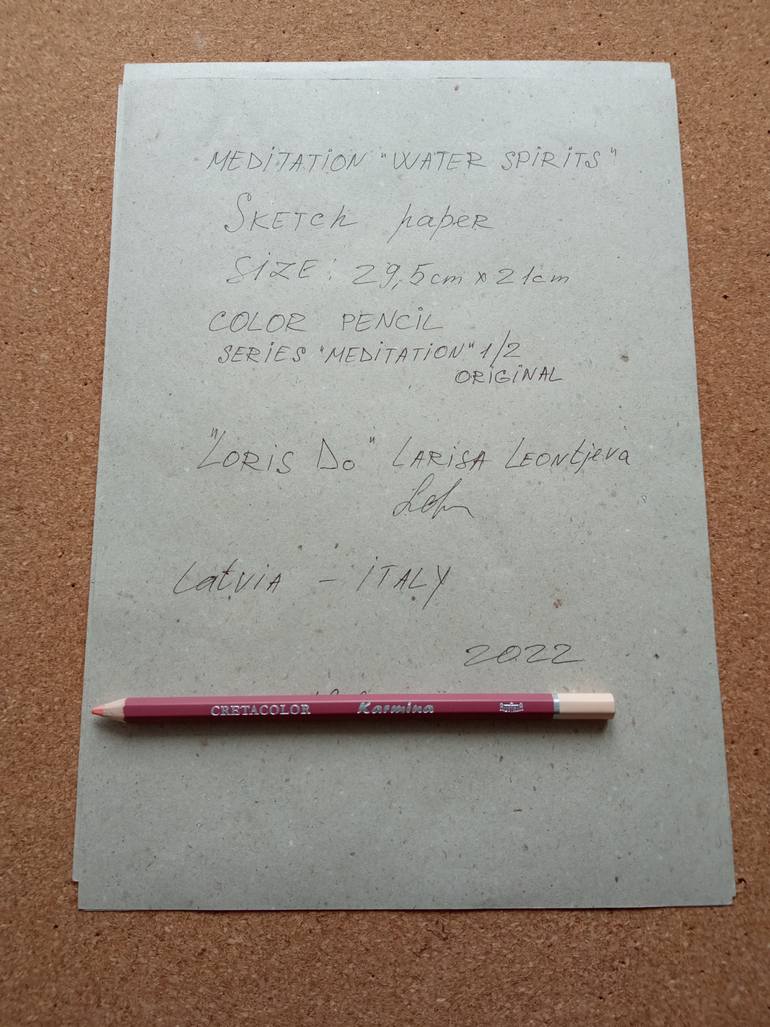 MEDITATION "WATER SPIRITS"
SKETCh paper
SIZE: 29,5cm x 21cm
COLOR PENCIL
SERIES "MEDITATION" 1/2
ORIGINAL
"LORIS DO" LARISA LEONtjeva
LatviA - ITALY
2022
CRETACOLOR Karmina